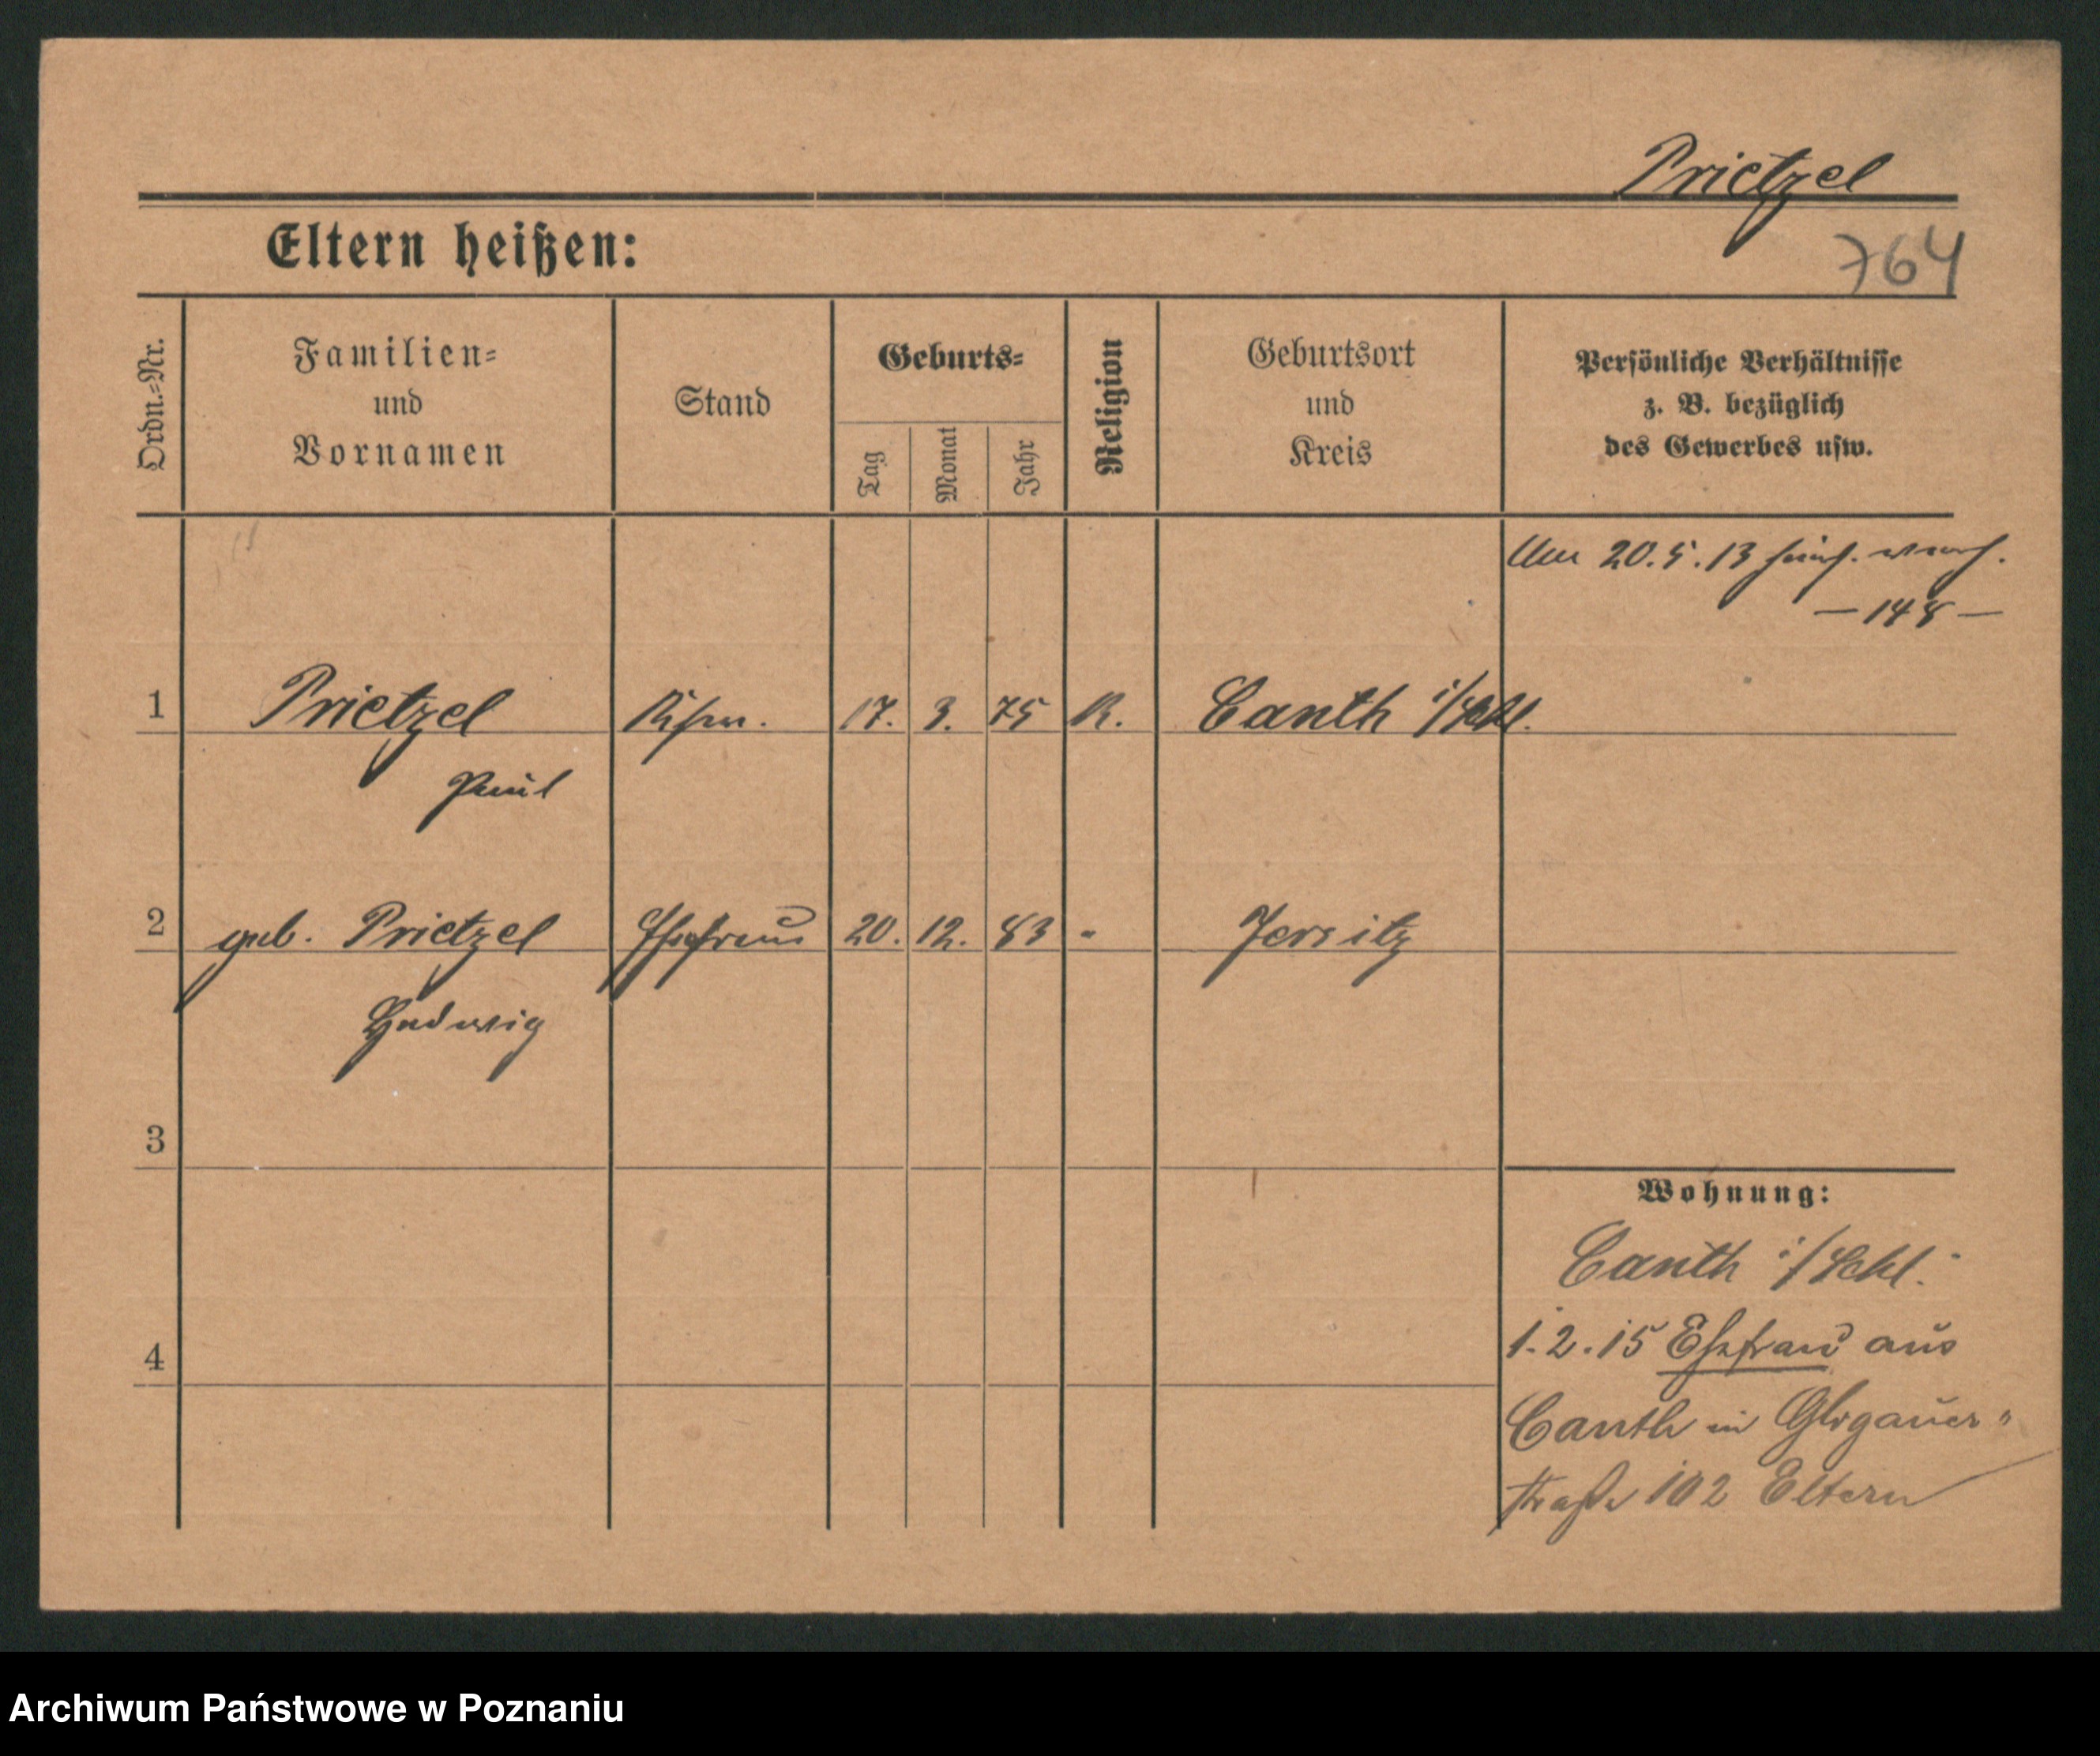 Prietzel
764
Eltern heißen:
Ordn.=Nr.
Familien=
und
Vornamen
Stand
Geburts=
Tag
Monat
Jahr
Religion
Geburtsort
und
Kreis
Persönliche Verhältnisse
z. B. bezüglich
des Gewerbes usw.
20.5.13
1 Prietzel Kfm. 17. 3. 75 K. Canth i/Schl.
Paul
2 geb. Prietzel Ehefrau 20. 12. 83 " Jersitz
Hedwig
3
4
Wohnung:
Canth i/Schl.
1.2.15 Ehefrau aus
Canth in Glogauer"
straße 102 Eltern
Archiwum Państwowe w Poznaniu